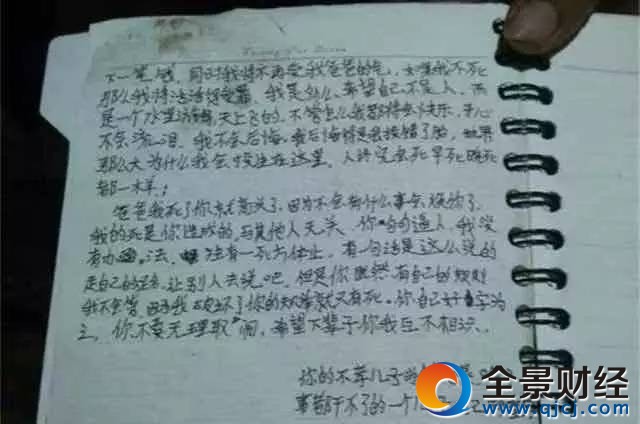 下一笔钱，同时我将不再受我爸爸的气，如果我不死
那么我将活活得受罪。我是多么希望自己不是人，而
是一个水里游 天上飞的。不管怎么我都将会快乐，开心
不会流泪。我不会后悔，我后悔的是我投错了胎，世界
那么大为什么我会投生在这里。人终究会死早死晚死
都一样；
爸爸我死了你就高兴了，因为不会有什么事会烦你了，
我的死是你造成的，与其他人无关，你句句逼人，我没
有办法，唯独有一死为休止，有一句话是这么说的
走自己的路，让别人去说吧，但是你既然有自己的规则
我不会管，因为我破坏了你的规矩就只有死。你自己好自为
之，你不要无理取闹，希望下辈子你我互不相识。
你的不孝儿子
事都干不了的一个儿
全景财经
www.qjcj.com